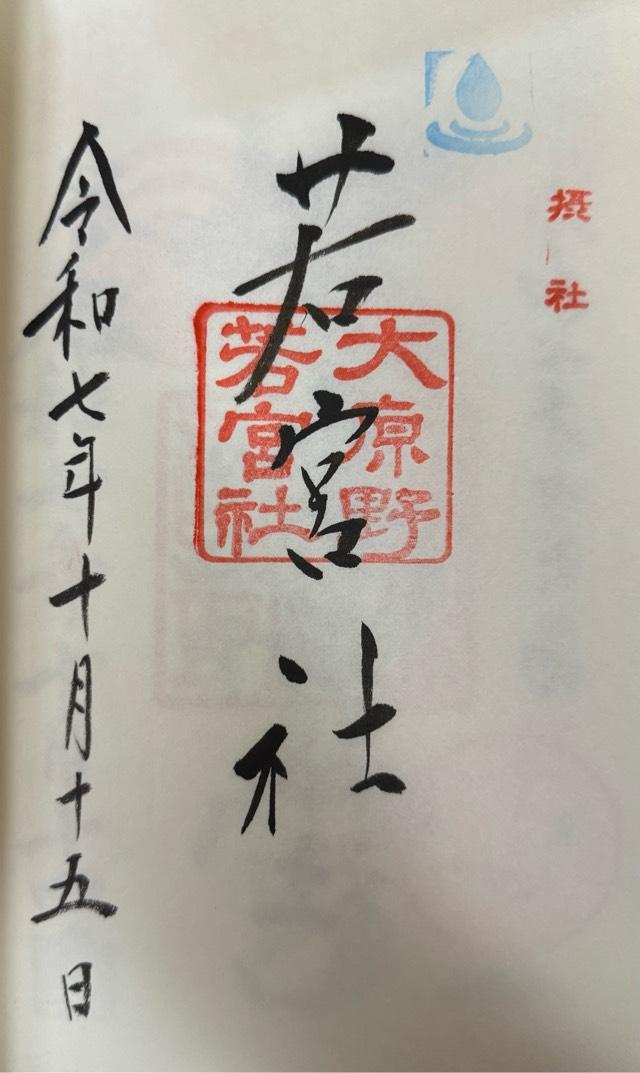 摂社
若宮社
大原野
若宮社
令和七年十月十五日